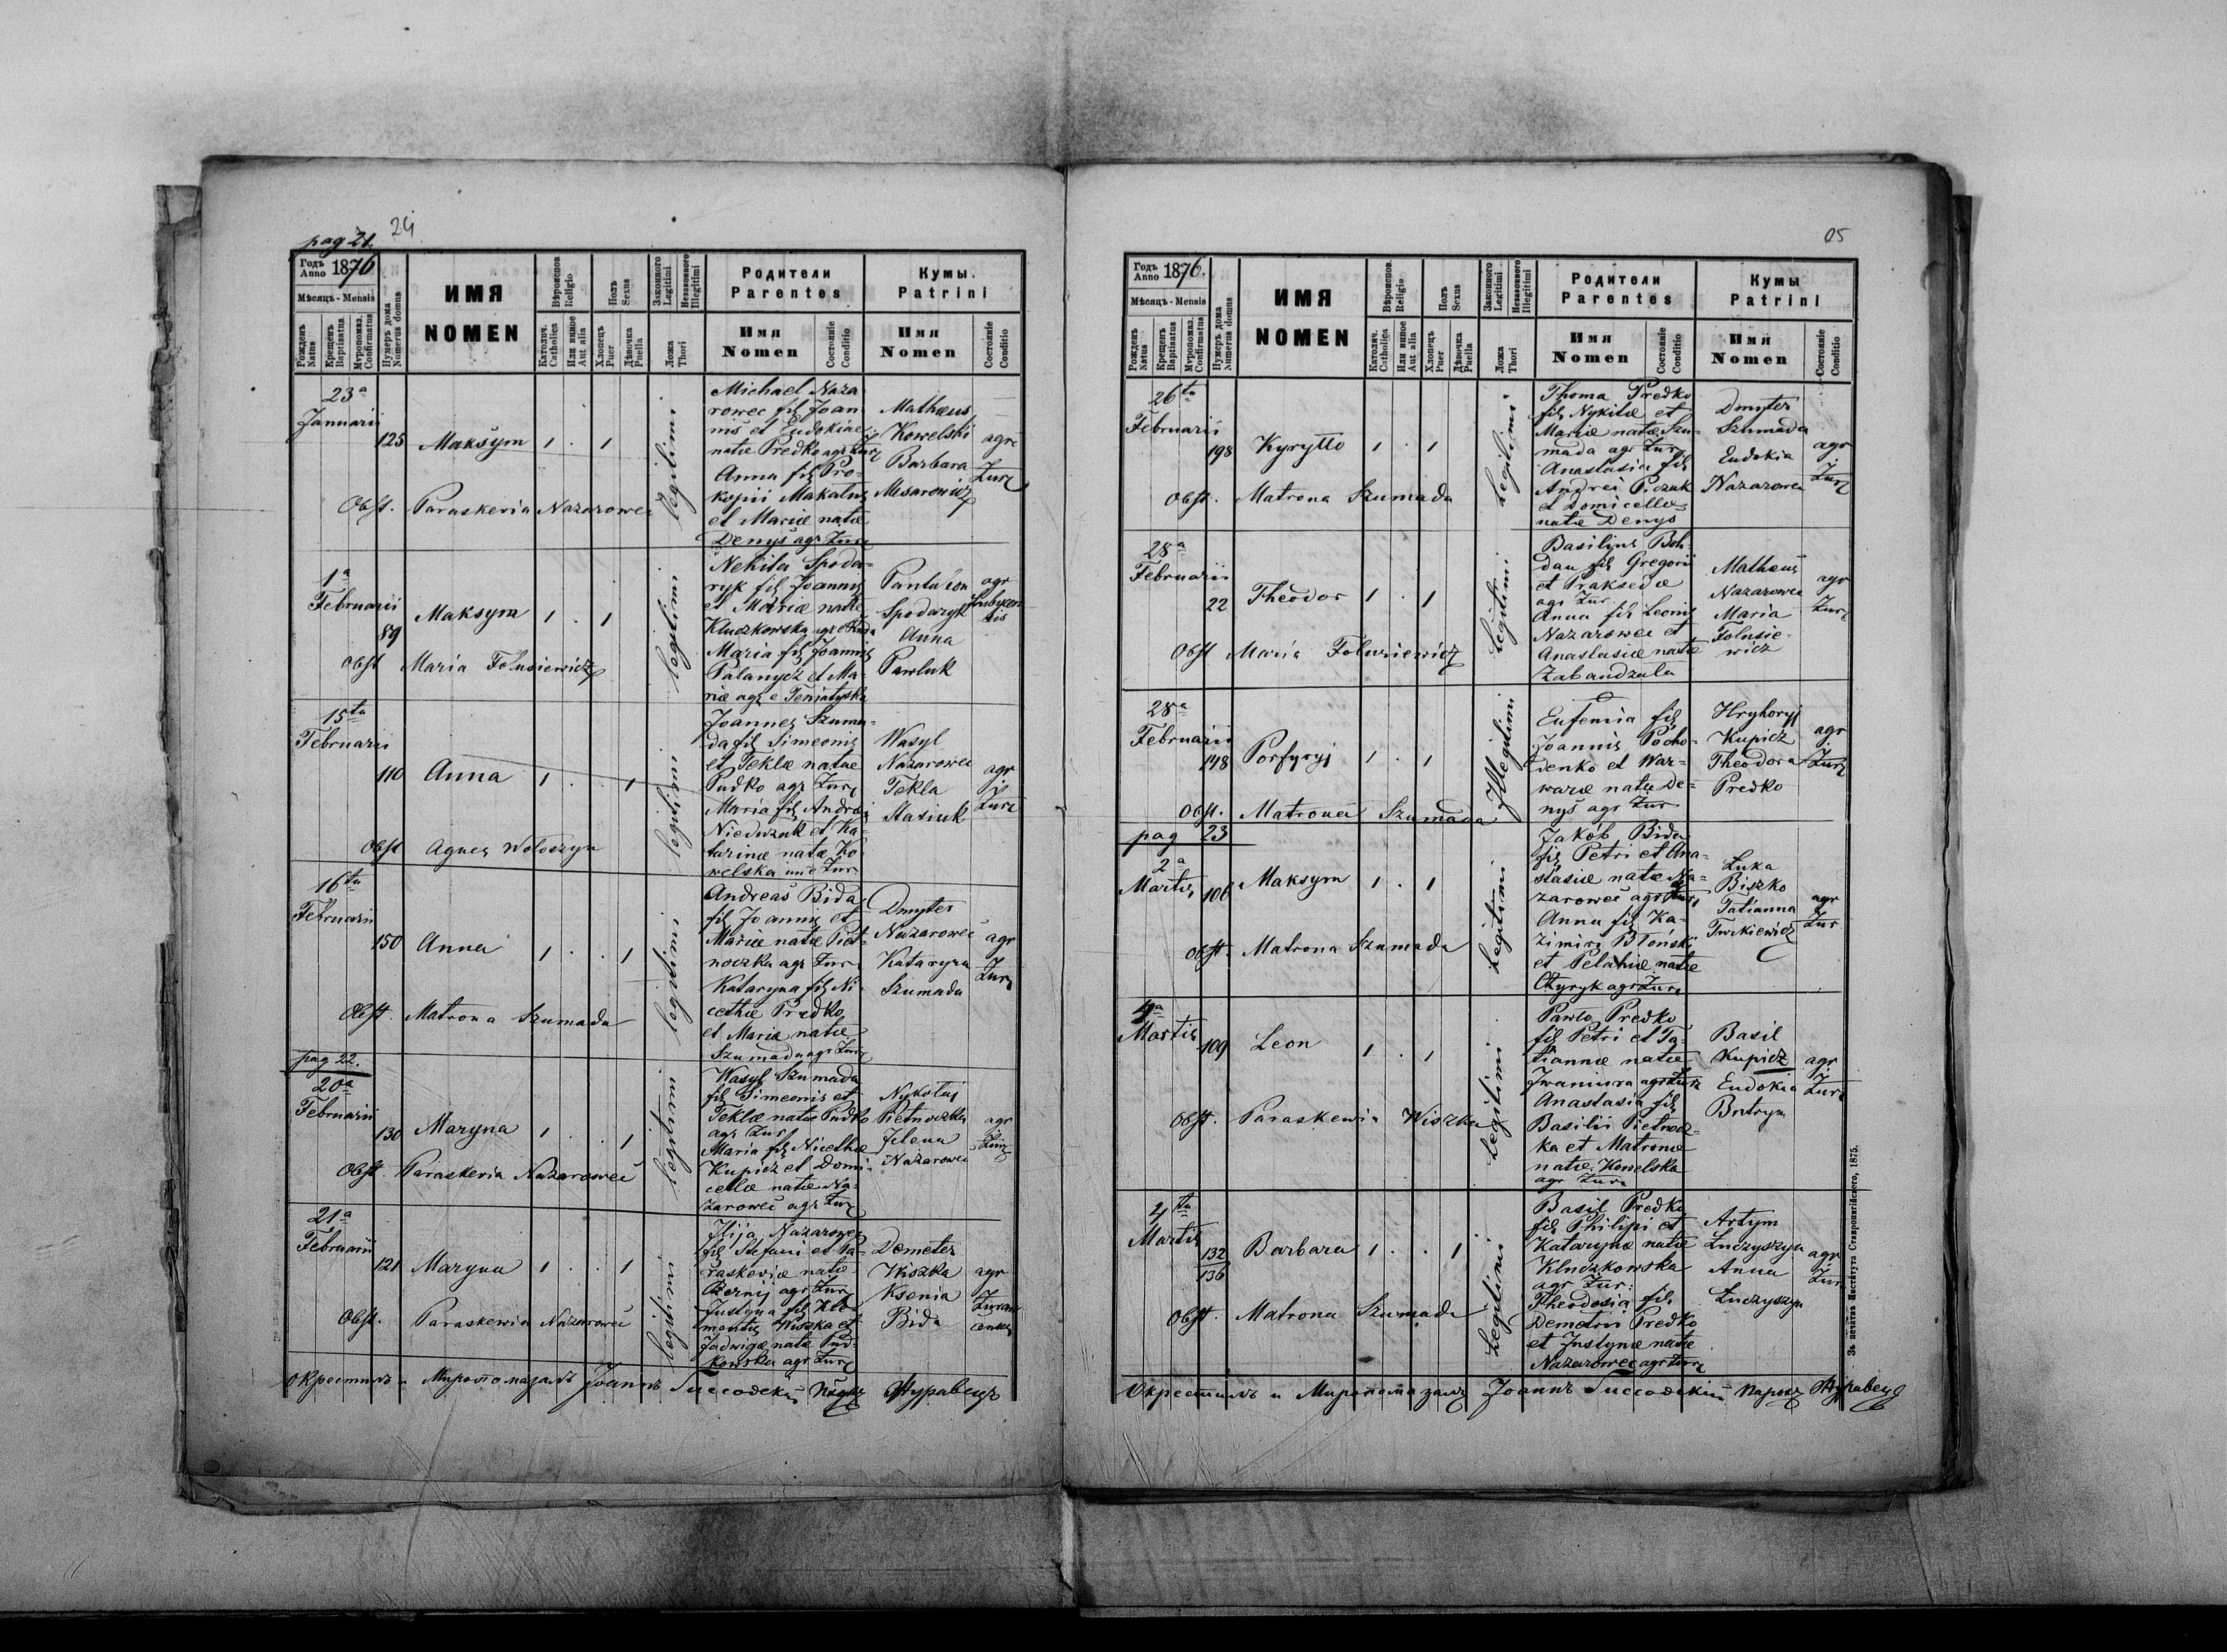 pag 21. 24
Годъ Anno 1876
Мѣсяцъ - Mensis
Рожденъ Natus
Крещенъ Baptisatus
Муропомаз. Confirmatus
Нумеръ дома Numerus domus
ИМЯ
NOMEN
Вѣроиспов. Religio
Католич. Catholica
Или иное Aut alia
Полъ Sexus
Хлопецъ Puer
Дѣвочка Puella
Законного Legitimi
Незаконного Illegitimi
Ложа Thori
Родители
Parentes
Имя
Nomen
Состояніе Conditio
Кумы.
Patrini
Имя
Nomen
Состояніе Conditio
23a
Januarii
125 Maksym 1 . 1
Obst. Paraskevia Nazarowec
legitimi
Michael Naza-
rowec fil Joan-
nis et Eudokiae
natae Predko agr Zur
Anna fil Pro-
kopii Makatus
et Mariae natae
Denys agr Zur
Matheus
Kowelski
Barbara
Mesarowicz
agr
Zur
1a
Februarii
89 Maksym 1 . 1
Obst Maria Folusiewicz
legitimi
Nekita Spoda-
ryk fil Joannis
et Mariae natae
Kluczkowska agr e Ruda
Maria fil Joannis
Palanycz et Ma-
riae agr e Teniatyska
Pantaleon
Spodaryk
Anna
Pawluk
agr
15ta
Februarii
110 Anna 1 . . 1
Obst Agnes Wołoszyn
legitimi
Joannes Szuma-
da fil Simeonis
et Teklae natae
Pudko agr Zur
Maria fil Andrei
Nieduzak et Ka-
tarinae natae Ko-
welska in e Zur
Wasyl
Nazarowec
Tekla
Stasiuk
agr
Zur
16ta
Februarii
150 Anna 1 . . 1
Obst. Matrona Szumada
legitimi
Andreas Bida
fil Joannis et
Mariae natae Piet-
noczka agr Zur
Kataryna fil Ni-
cethae Predko
et Mariae natae
Szumada agr Zur
Dmyter
Nazarowec
Kataryna
Szumada
agr
Zur
pag 22.
20a
Februarii
130 Maryna 1 . . 1
Obst. Paraskevia Nazarowec
legitimi
Wasyl Szumada
fil Simeonis et
Teklae natae Pudko
agr Zur
Maria fil Nicethae
Kupicz et Domi-
cellae natae Na-
zarowec agr Zur
Nykołaj
Pietnoczka
Jelena
Nazarowec
agr
Zur
21a
Februarii
121 Maryna 1 . . 1
Obst. Paraskewia Nazarowec
legitimi
Ilija Nazarowec
fil Stefani et Pa-
raskeviae natae
Czernij agr Zur
Justyna fil Kle-
mentis Wiszka et
Jadwigae natae Pud-
kowska agr Zur
Demeter
Wiszka
Ksenia
Bida
agr
Окрестилъ и Миропомазалъ Іоаннъ Парохъ Журавецъ
05
Годъ Anno 1876.
Мѣсяцъ - Mensis
Рожденъ Natus
Крещенъ Baptisatus
Муропомаз. Confirmatus
Нумеръ дома Numerus domus
ИМЯ
NOMEN
Вѣроиспов. Religio
Католич. Catholica
Или иное Aut alia
Полъ Sexus
Хлопецъ Puer
Дѣвочка Puella
Законного Legitimi
Незаконного Illegitimi
Ложа Thori
Родители
Parentes
Имя
Nomen
Состояніе Conditio
Кумы
Patrini
Имя
Nomen
Состояніе Conditio
26ta
Februarii
198 Kyryłło 1 . 1
Obst. Matrona Szumada
Legitimi
Thoma Predko
fil Nykitae et
Mariae natae Szu-
mada agr Zur
Anastasia fil
Andrei Piczuk
et Domicellae
natae Denys
Dmyter
Szumada
Eudokia
Nazarowec
agr
Zur
28a
Februarii
22 Theodor 1 . 1
Obst Maria Folusiewicz
Legitimi
Basilius Boh-
dan fil Gregorii
et Praksedae
agr Zur
Anna fil Leonis
Nazarowec et
Anastasiae natae
Zabandzala
Matheus
Nazarowec
Maria
Folusie-
wicz
agr
Zur
28a
Februarii
148 Porfyryj 1 . 1
Obst. Matrona Szumada
Illegitimi
Eufemia fil
Joannis Pocho-
denko et War-
warae natae De-
nys agr Zur
Hryhoryj
Kupicz
Theodora
Predko
agr
Zur
pag 23
2a
Martii
106 Maksym 1 . 1
Obst. Matrona Szumada
Legitimi
Jakób Bida
fil Petri et Ana-
stasiae natae Na-
zarowec agr Zur
Anna fil Ka-
zimiri Błoński
et Pelahiae natae
Czyryk agr Zur
Luka
Biszko
Tatianna
Turkiewicz
agr
Zur
4a
Martii
109 Leon 1 . 1
Obst. Paraskewia Wiszka
Legitimi
Pawło Predko
fil Petri et Ta-
tiannae natae
Iwaniura agr Zur
Anastasia fil
Basilii Pietnocz-
ka et Matronae
natae Kowelska
agr Zur
Basil
Kupicz
Eudokia
Butryn
agr
Zur
4ta
Martii
132
136
Barbara 1 . . 1
Obst. Matrona Szumada
Legitimi
Basil Predko
fil Philipi et
Katarynae natae
Kluczkowska
agr Zur:
Theodosia fil
Demetrii Predko
et Justynae natae
Nazarowec agr Zur
Artym
Luczyszyn
Anna
Luczyszyn
agr
Zur
Окрестилъ и Миропомазалъ Іоаннъ Парохъ Журавецъ
Зъ печатнѣ Института Ставропигійского, 1875.